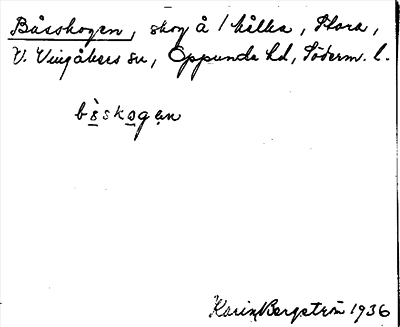 Båsskogen, skog å Hålka, Stora,
V. Vingåkers sn, Oppunda hd, Söderm. l.
bòskogan
Karin Bergström 1936